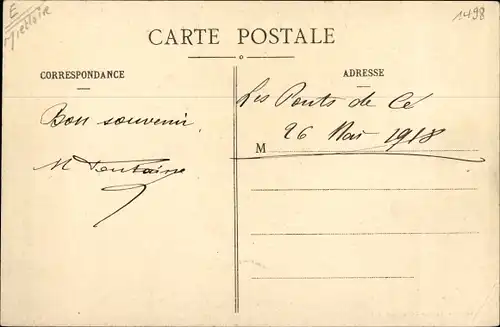 E
1498
CARTE POSTALE
CORRESPONDANCE
ADRESSE
Bon souvenir.
M Fontaine
Les Ponts de Cé
26 Mai 1918
M